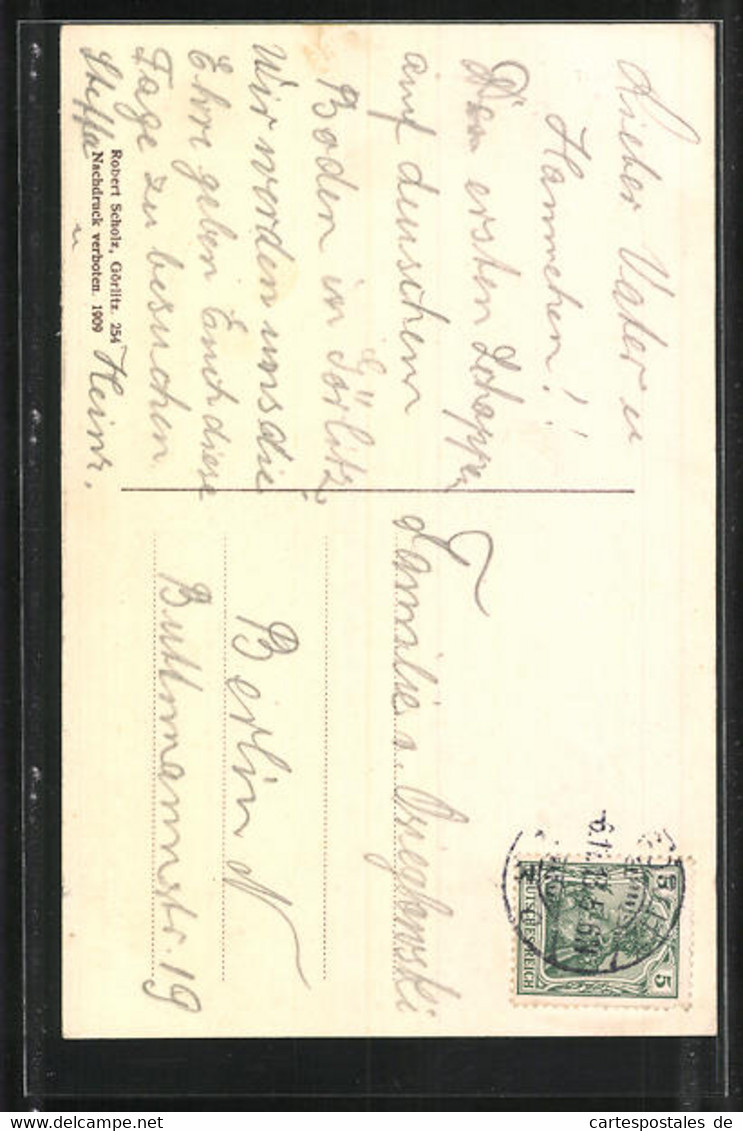 Lieber Vater u
Hannchen!
Den ersten Schoppen
auf deuschem
Boden in Görlitz.
Wir werden uns die
Ehre geben Euch diese
Tage zu besuchen.
Steffa u Heinr.
Robert Scholz, Görlitz. 254
Nachdruck verboten. 1909
Familie
Berlin N
Buttmannstr. 19
5 5
DEUTSCHES REICH
cartespostales de